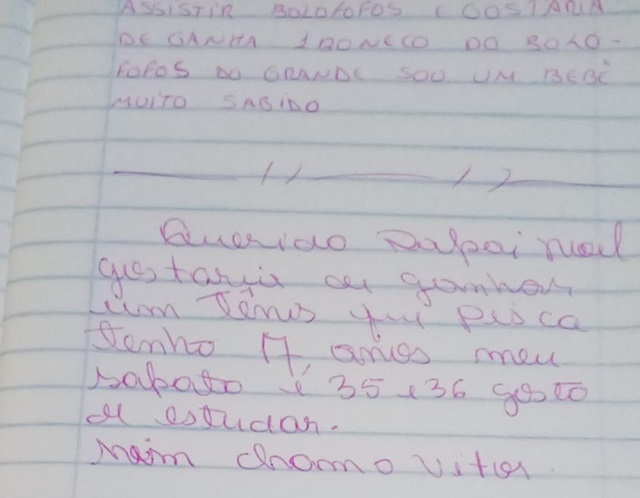 ASSISTIR BOLOFOFOS E GOSTARIA
DE GANHA 1 BONECO DO BOLO-
FOFOS DO GRANDE SOU UM BEBÊ
MUITO SABIDO
Querido Papai noel
gostaria de ganhar
um Tênis que pisca
Tenho 7, anos meu
sapato é 35 e 36 gosto
de estudar.
mim chamo vitor.